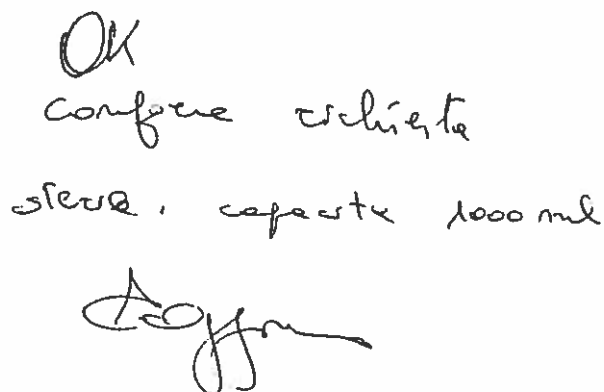 OK
conforme richiesta
capacità 1000 ml